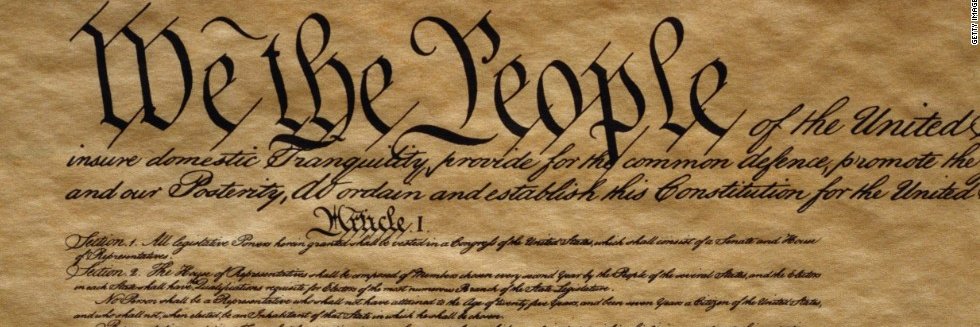 We the People of the United
insure domestic Tranquility, provide for the common defence, promote the
and our Posterity, do ordain and establish this Constitution for the United
Article I.
Section 1. All legislative Powers herein granted shall be vested in a Congress of the United States, which shall consist of a Senate and House
of Representatives.
Section 2. The House of Representatives shall be composed of Members chosen every second Year by the People of the several States, and the Electors
in each State shall have the Qualifications requisite for Electors of the most numerous Branch of the State Legislature.
No Person shall be a Representative who shall not have attained to the Age of twenty five Years, and been seven Years a Citizen of the United States,
and who shall not, when elected, be an Inhabitant of that State in which he shall be chosen.
GETTY IMAGE